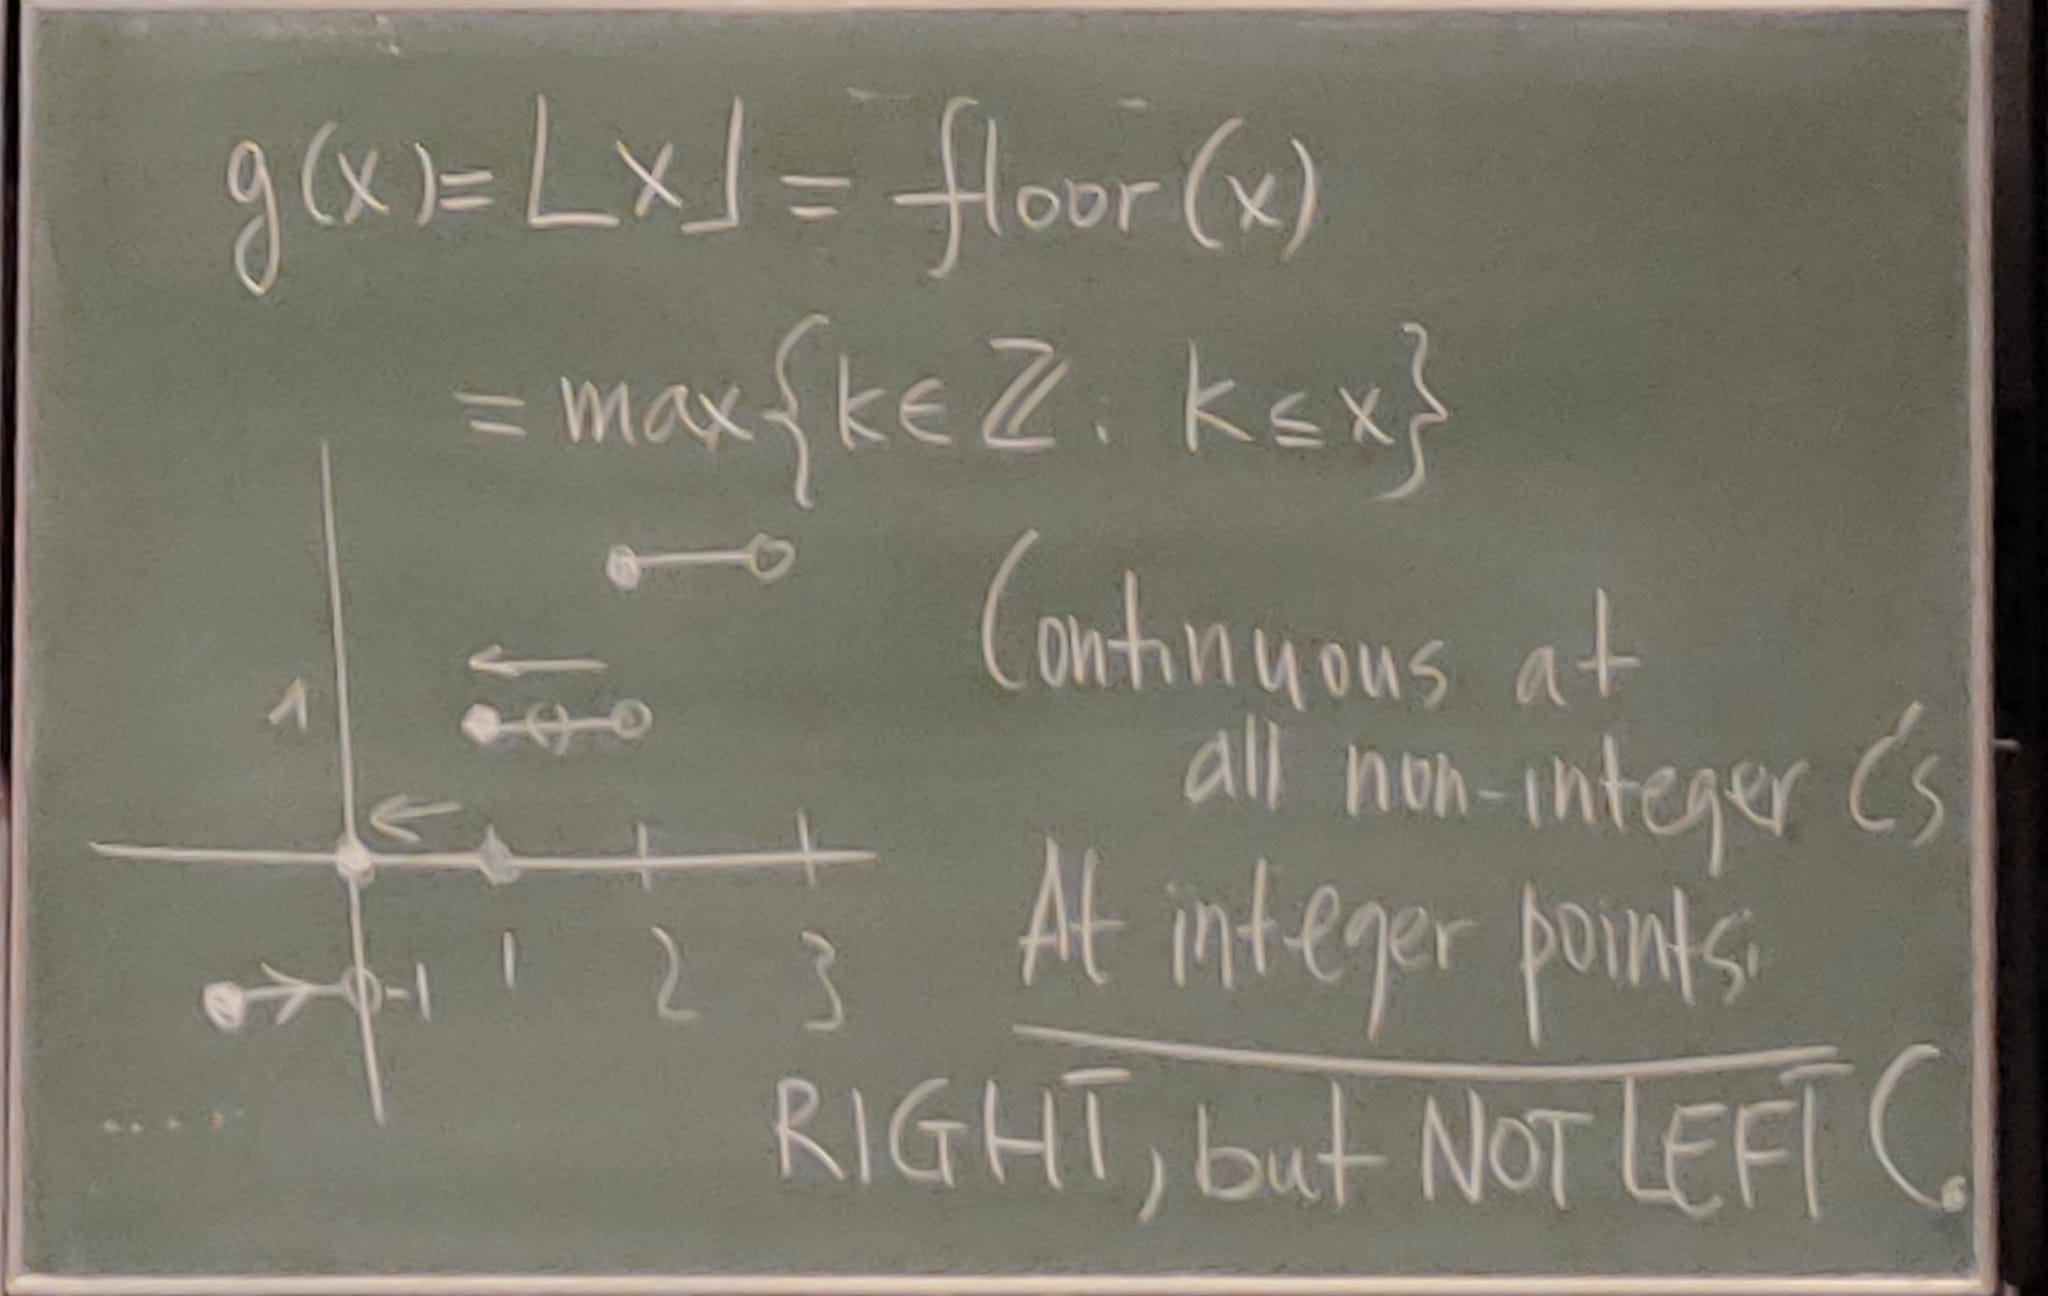 g(x) = ⌊x⌋ = floor(x)
= max{k∈ℤ: k≤x}
1
-1 1 2 3
.....
Continuous at
all non-integer c's
At integer points:
RIGHT, but NOT LEFT C.